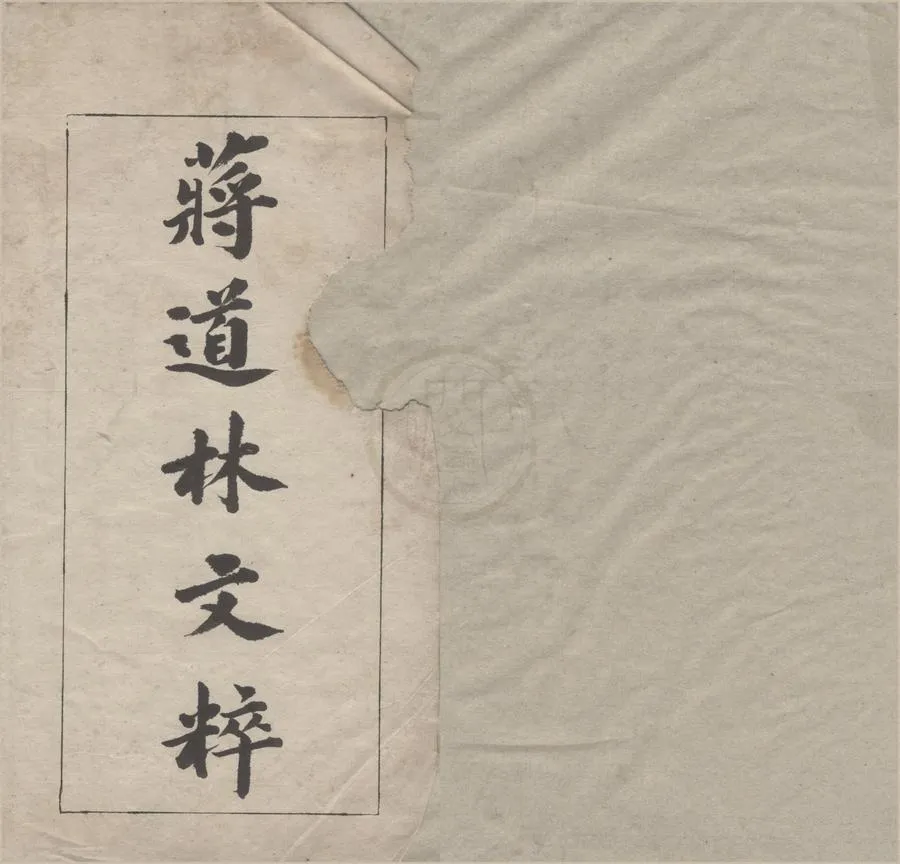 蔣道林文粹